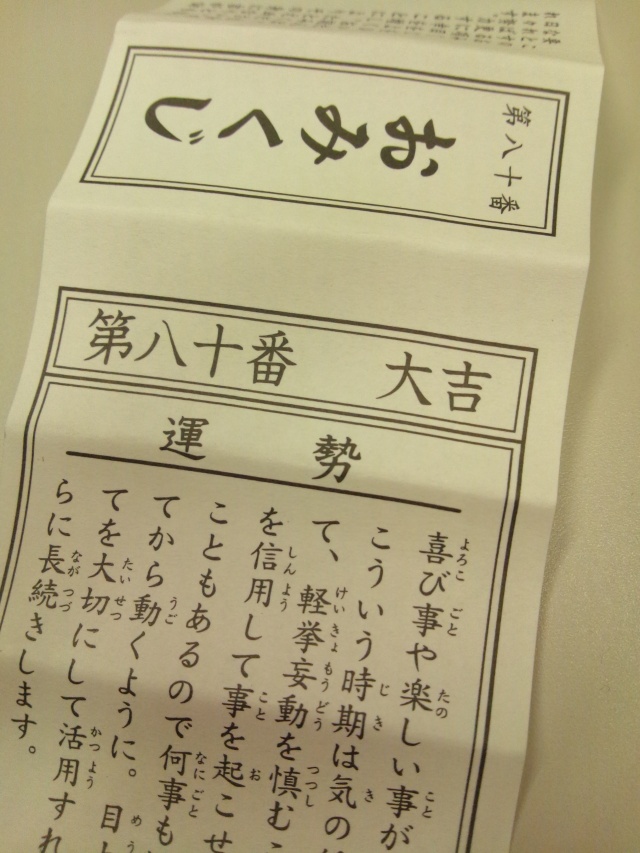 第八十番
おみくじ
第八十番 大吉
運勢
喜び事や楽しい事が
こういう時期は気の
て、軽挙妄動を慎むこ
を信用して事を起こせ
こともあるので何事も
てから動くように。 目
てを大切にして活用すれ
らに長続きします。